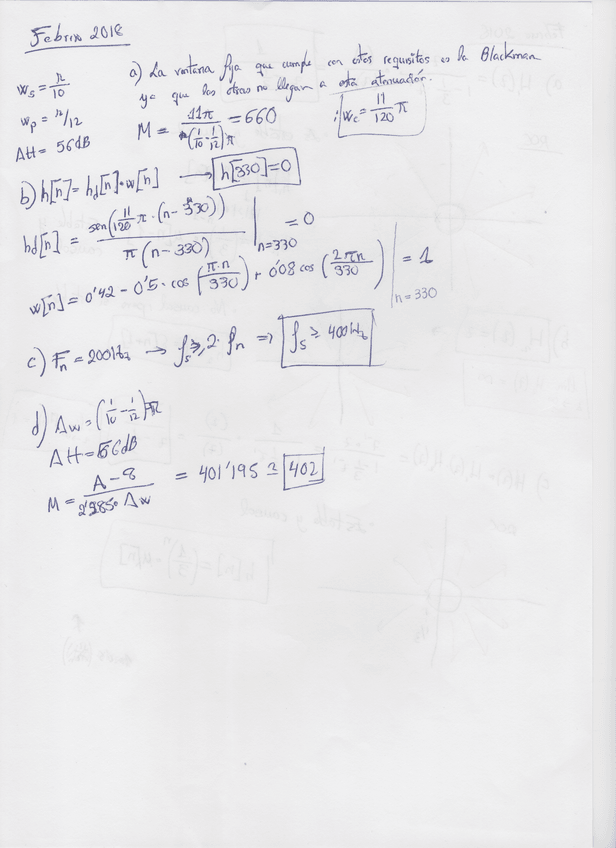 Febrero 2018
a) La ventana fija que cumple con estos requisitos es la Blackman
ya que las otras no llegan a esta atenuación.
ws = π/10
wp = π/12
AH = 56dB
M = 11π/((1/10 - 1/12)π) = 660
wc = 11/120 π
b) h[n] = hd[n]·w[n] → h[330] = 0
hd[n] = sen(11/120 π·(n-330))/(π(n-330)) |n=330 = 0
w[n] = 0'42 - 0'5·cos(π·n/330) + 0'08 cos(2πn/330) |n=330 = 1
c) Fn = 200Hz → fs ≥ 2·fn ⇒ fs ≥ 400Hz
d) Δw = (1/10 - 1/12)π
AH = 56dB
M = (A-8)/(2'285·Δw) = 401'195 ≅ 402